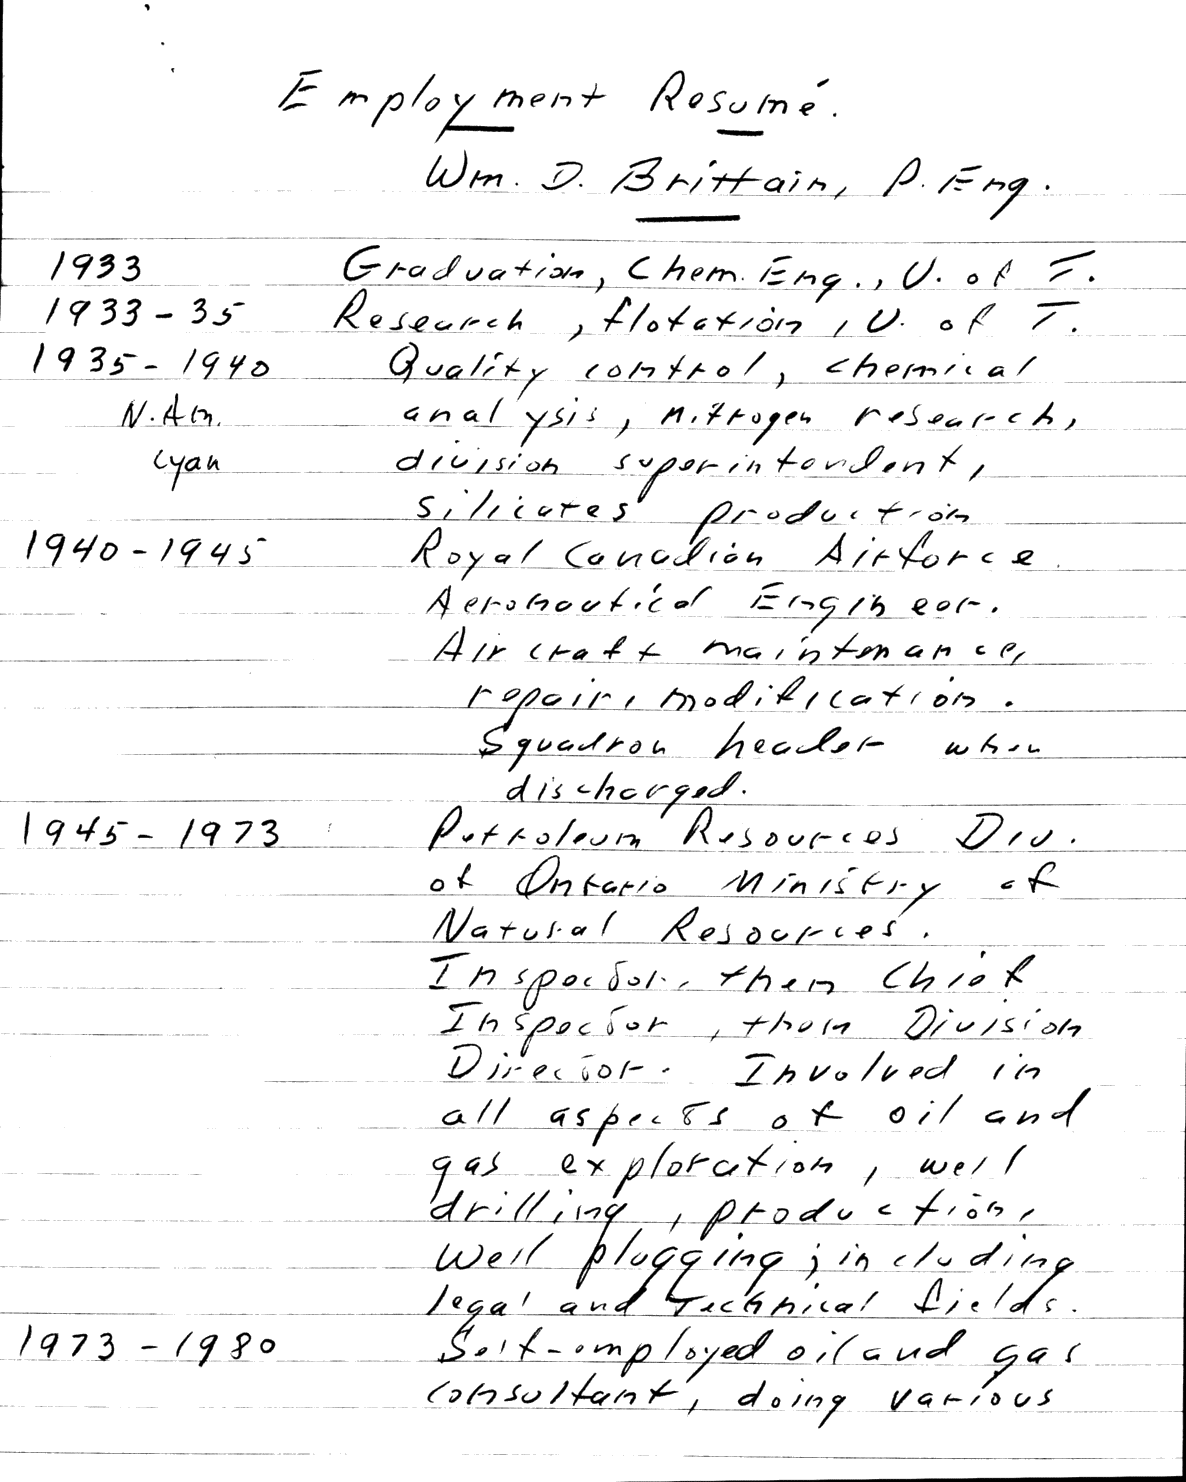 Employment Resumé.
Wm. D. Brittain, P. Eng.
1933 Graduation, Chem. Eng., U. of T.
1933-35 Research, flotation, U. of T.
1935-1940 Quality control, chemical
N. Am. analysis, nitrogen research,
Cyan division superintendent,
silicates production
1940-1945 Royal Canadian Airforce
Aeronautical Engineer.
Aircraft maintenance,
repair, modification.
Squadron header when
discharged.
1945-1973 Petroleum Resources Div.
of Ontario Ministry of
Natural Resources.
Inspector, then Chief
Inspector, then Division
Director. Involved in
all aspects of oil and
gas exploration, well
drilling, production,
well plugging; including
legal and technical fields.
1973-1980 Self-employed oil and gas
consultant, doing various